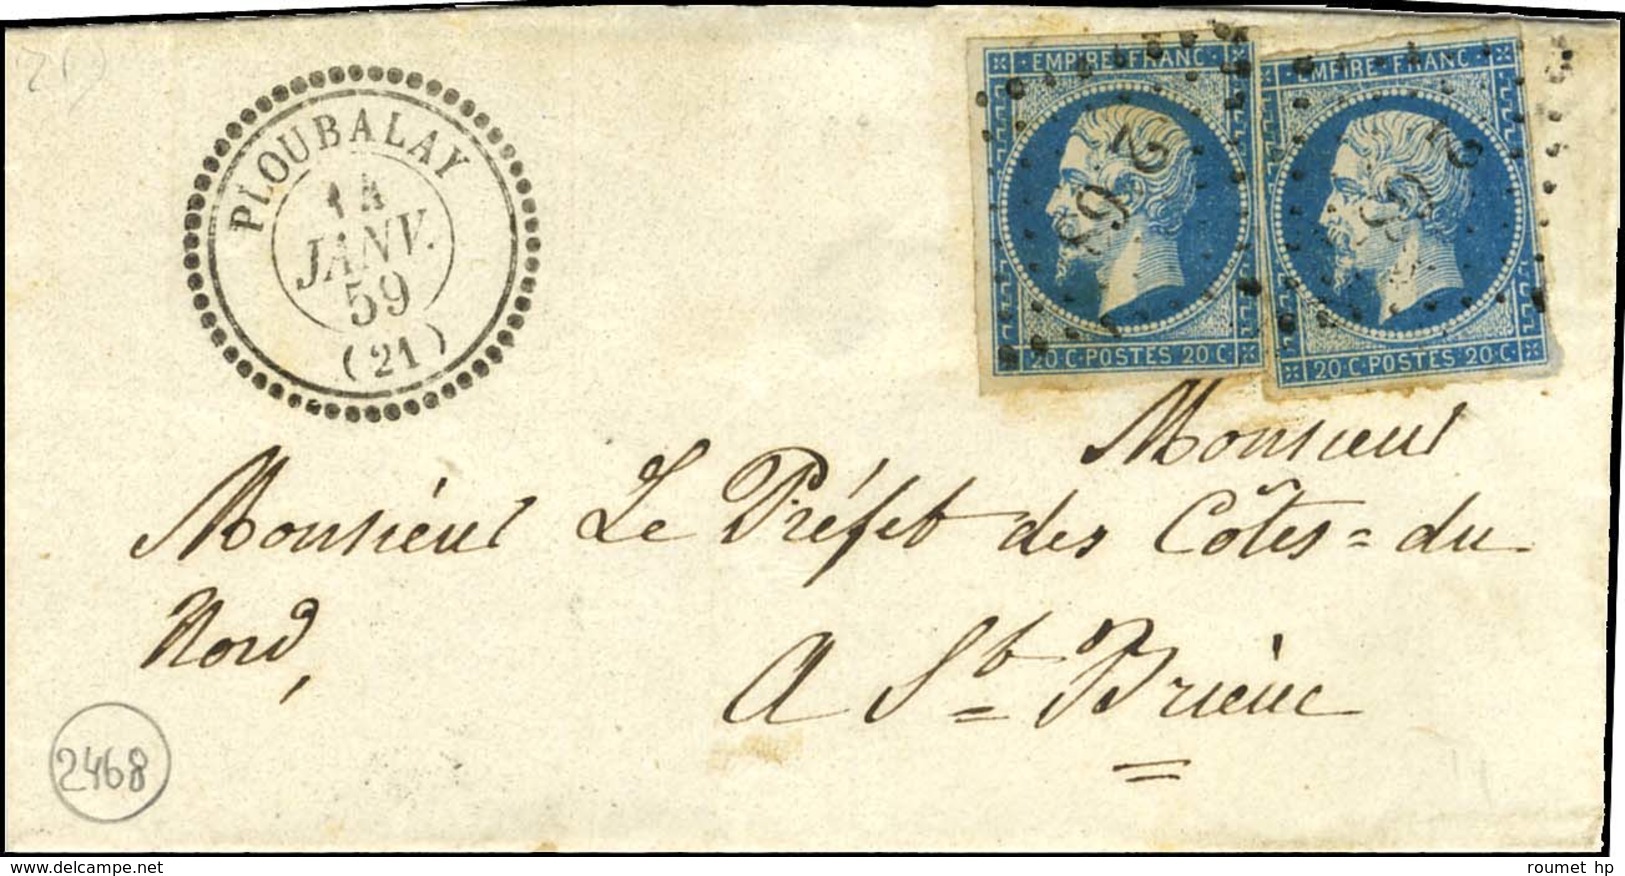 PLOUBALAY
14
JANV.
59
(21)
EMPIRE FRANC
20 C POSTES 20 C
EMPIRE FRANC
20 C POSTES 20 C
Monsieur
Monsieur Le Préfet des Côtes=du
Nord,
A St=Brieuc
2468
roumet hp